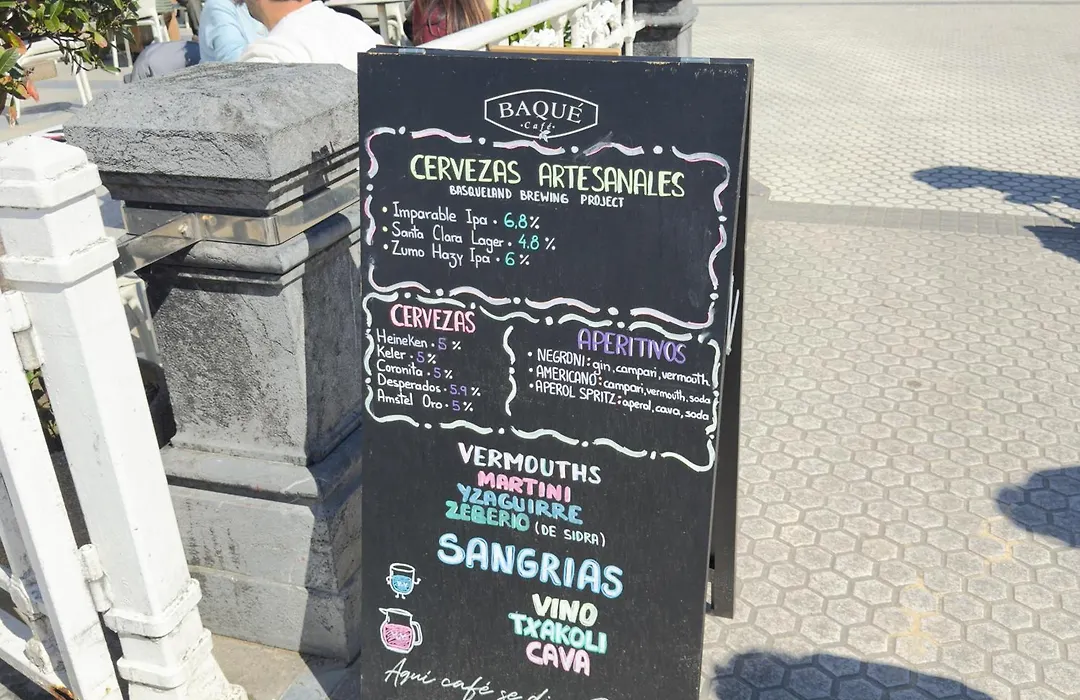 BAQUÉ
·Café·
CERVEZAS ARTESANALES
BASQUELAND BREWING PROJECT
• Imparable Ipa • 6,8 %
• Santa Clara Lager • 4.8 %
• Zumo Hazy Ipa • 6 %
CERVEZAS
Heineken • 5 %
Keler • 5 %
Coronita • 5 %
Desperados • 5.9 %
Amstel Oro • 5 %
APERITIVOS
• NEGRONI: gin, campari, vermouth.
• AMERICANO: campari, vermouth, soda
• APEROL SPRITZ: aperol, cava, soda
VERMOUTHS
MARTINI
YZAGUIRRE
ZEBERIO (DE SIDRA)
SANGRIAS
VINO
TXAKOLI
CAVA
Aquí café se